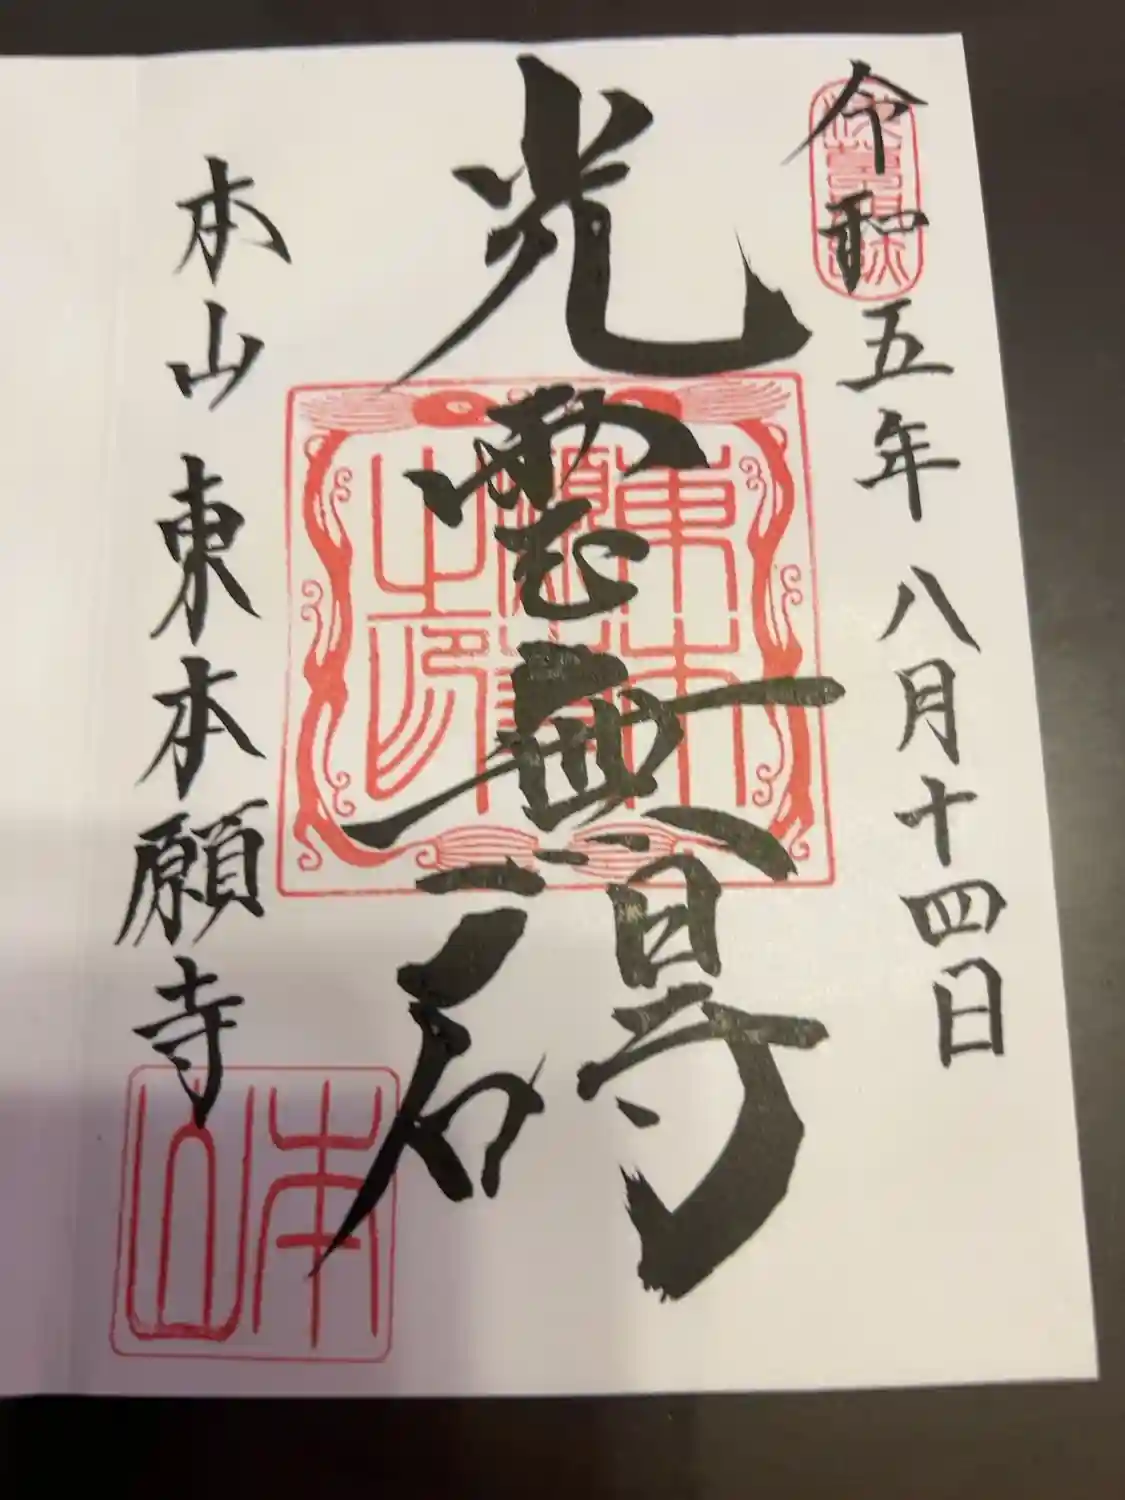 令和五年八月十四日
光雲無碍
本山東本願寺
東本願寺之印
本山